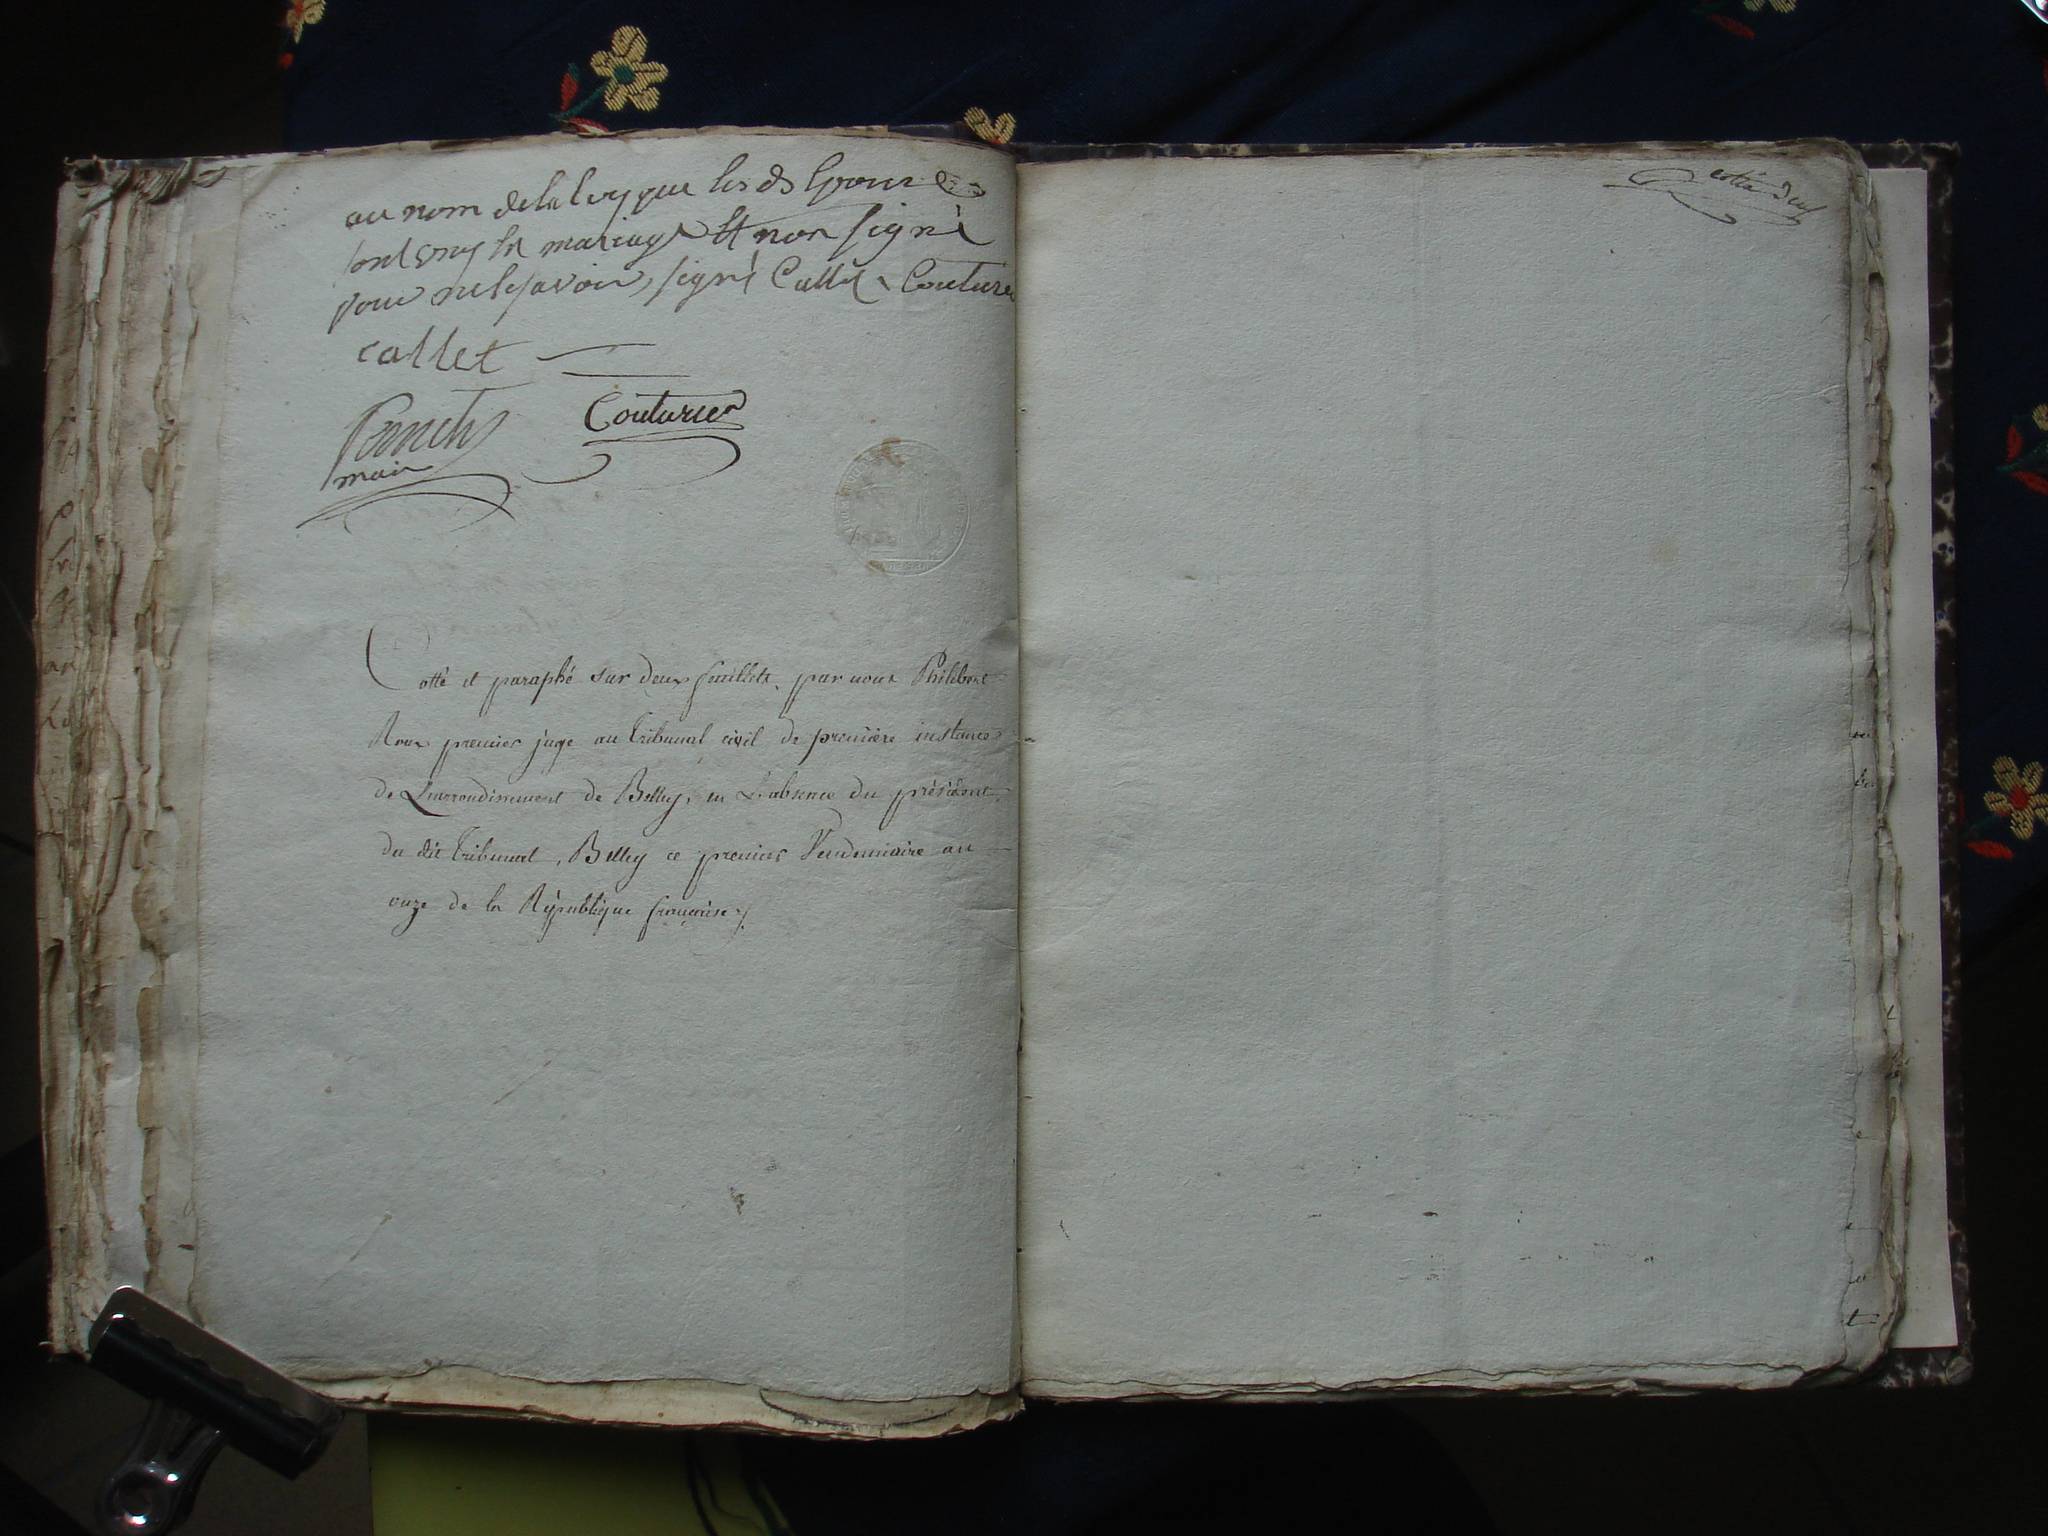 au nom de la loy que les ds Epoux
sont unis en mariage Et non signé
pour ne le savoir, signé Callet Couturier
callet
Couturier
maire
Cotté et paraphé sur deux feuillets, par nous Philibert
Roux premier juge au Tribunal civil de première instance
de L'arrondissement de Belley, en L'absence du président
du dit Tribunal, Belley ce premier Vendemiaire an
onze de la République française